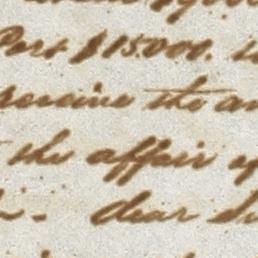 Port $15.000.
receive the an
the affair of
dear Si